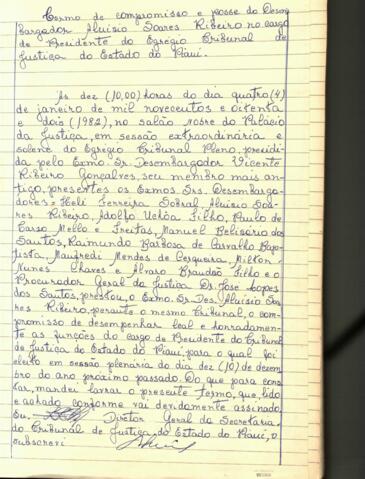 Termo de compromisso e posse do Desem
bargador Aluísio Soares Ribeiro no cargo
de Presidente do Egrégio Tribunal de
Justiça do Estado do Piauí.
Às dez (10,00) horas do dia quatro (4)
de janeiro de mil novecentos e oitenta
e dois (1982), no salão nobre do Palácio
da Justiça, em sessão extraordinária e
solene do Egrégio Tribunal Pleno, presidi-
da pelo Exmo. Sr. Desembargador Vicente
Ribeiro Gonçalves, seu membro mais an-
tigo, presentes os Exmos. Srs. Desembarga-
dores = Heli Ferreira Sobral, Aluísio Soa-
res Ribeiro, Adolfo Uchôa Filho, Paulo de
Tarso Mello e Freitas, Manuel Belisário dos
Santos, Raimundo Barbosa de Carvalho Bap-
tista, Manfredi Mendes de Cerqueira, Milton
Nunes Chaves e Álvaro Brandão Filho e o
Procurador Geral da Justiça Dr. José Lopes
dos Santos, prestou, o Exmo. Sr. Des. Aluísio Soa-
res Ribeiro, perante o mesmo Tribunal, o com-
promisso de desempenhar leal e honradamen-
te as funções do cargo de Presidente do Tribunal
de Justiça do Estado do Piauí, para o qual foi
eleito em sessão plenária do dia dez (10) de dezem
bro do ano próximo passado. Do que para cons-
tar, mandei lavrar o presente termo, que, lido
e achado conforme vai devidamente assinado.
Eu, Diretor Geral da Secretaria
do Tribunal de Justiça do Estado do Piauí, o
subscrevi